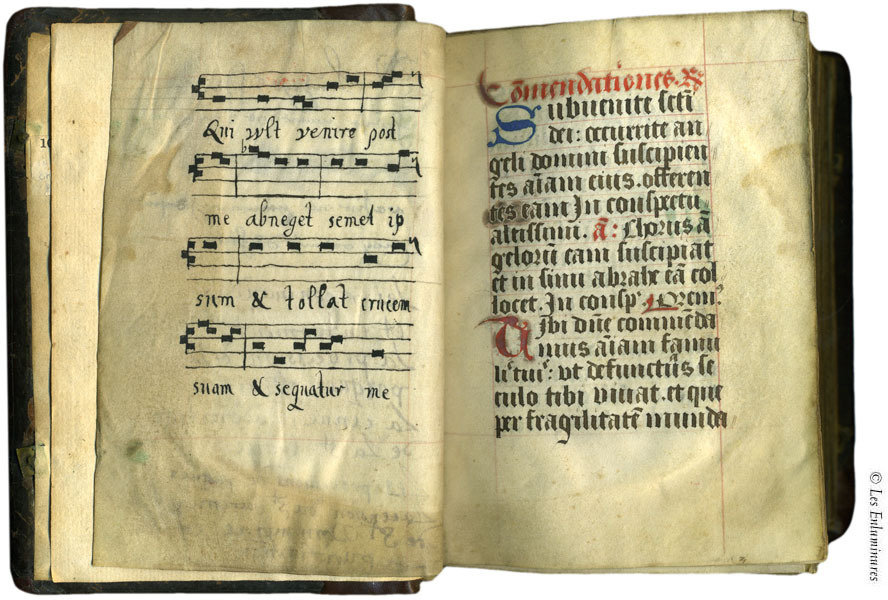 Qui vlt venire post
me abneget semet ip
sum & tollat crucem
suam & sequatur me
Comendationes. R
Subuenite scti
dei: occurrite an
geli domini suscipien
tes aīam eius. offeren
tes eam In conspectu
altissimi. ā: Chorus ā
gelorū eam suscipiat
et in sinu abrahe eā col
locet. In consp. Orem'.
Tibi dn̄e commēda
mus aīam famu
li tui: vt defunct's se
culo tibi viuat. et que
per fragilitatē munda
© Les Enluminures